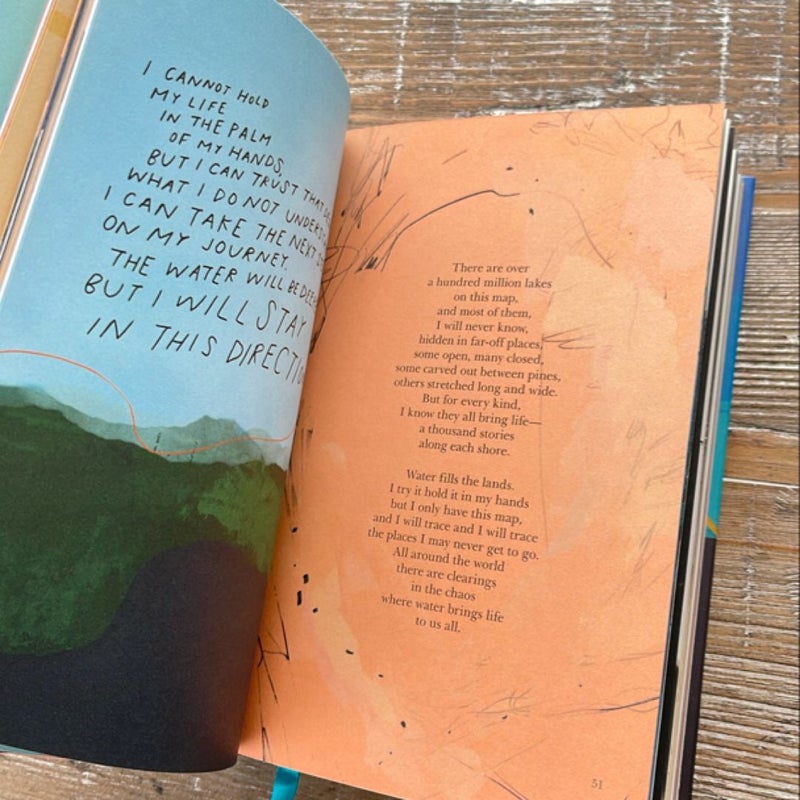 I CANNOT HOLD
MY LIFE
IN THE PALM
OF MY HANDS,
BUT I CAN TRUST THAT
WHAT I DO NOT
I CAN TAKE THE NEXT
ON MY JOURNEY.
THE WATER WILL BE
BUT I WILL STAY
IN THIS
There are over
a hundred million lakes
on this map,
and most of them,
I will never know,
hidden in far-off places,
some open, many closed,
some carved out between pines,
others stretched long and wide.
But for every kind,
I know they all bring life—
a thousand stories
along each shore.
Water fills the lands.
I try it hold it in my hands
but I only have this map,
and I will trace and I will trace
the places I may never get to go.
All around the world
there are clearings
in the chaos
where water brings life
to us all.
51